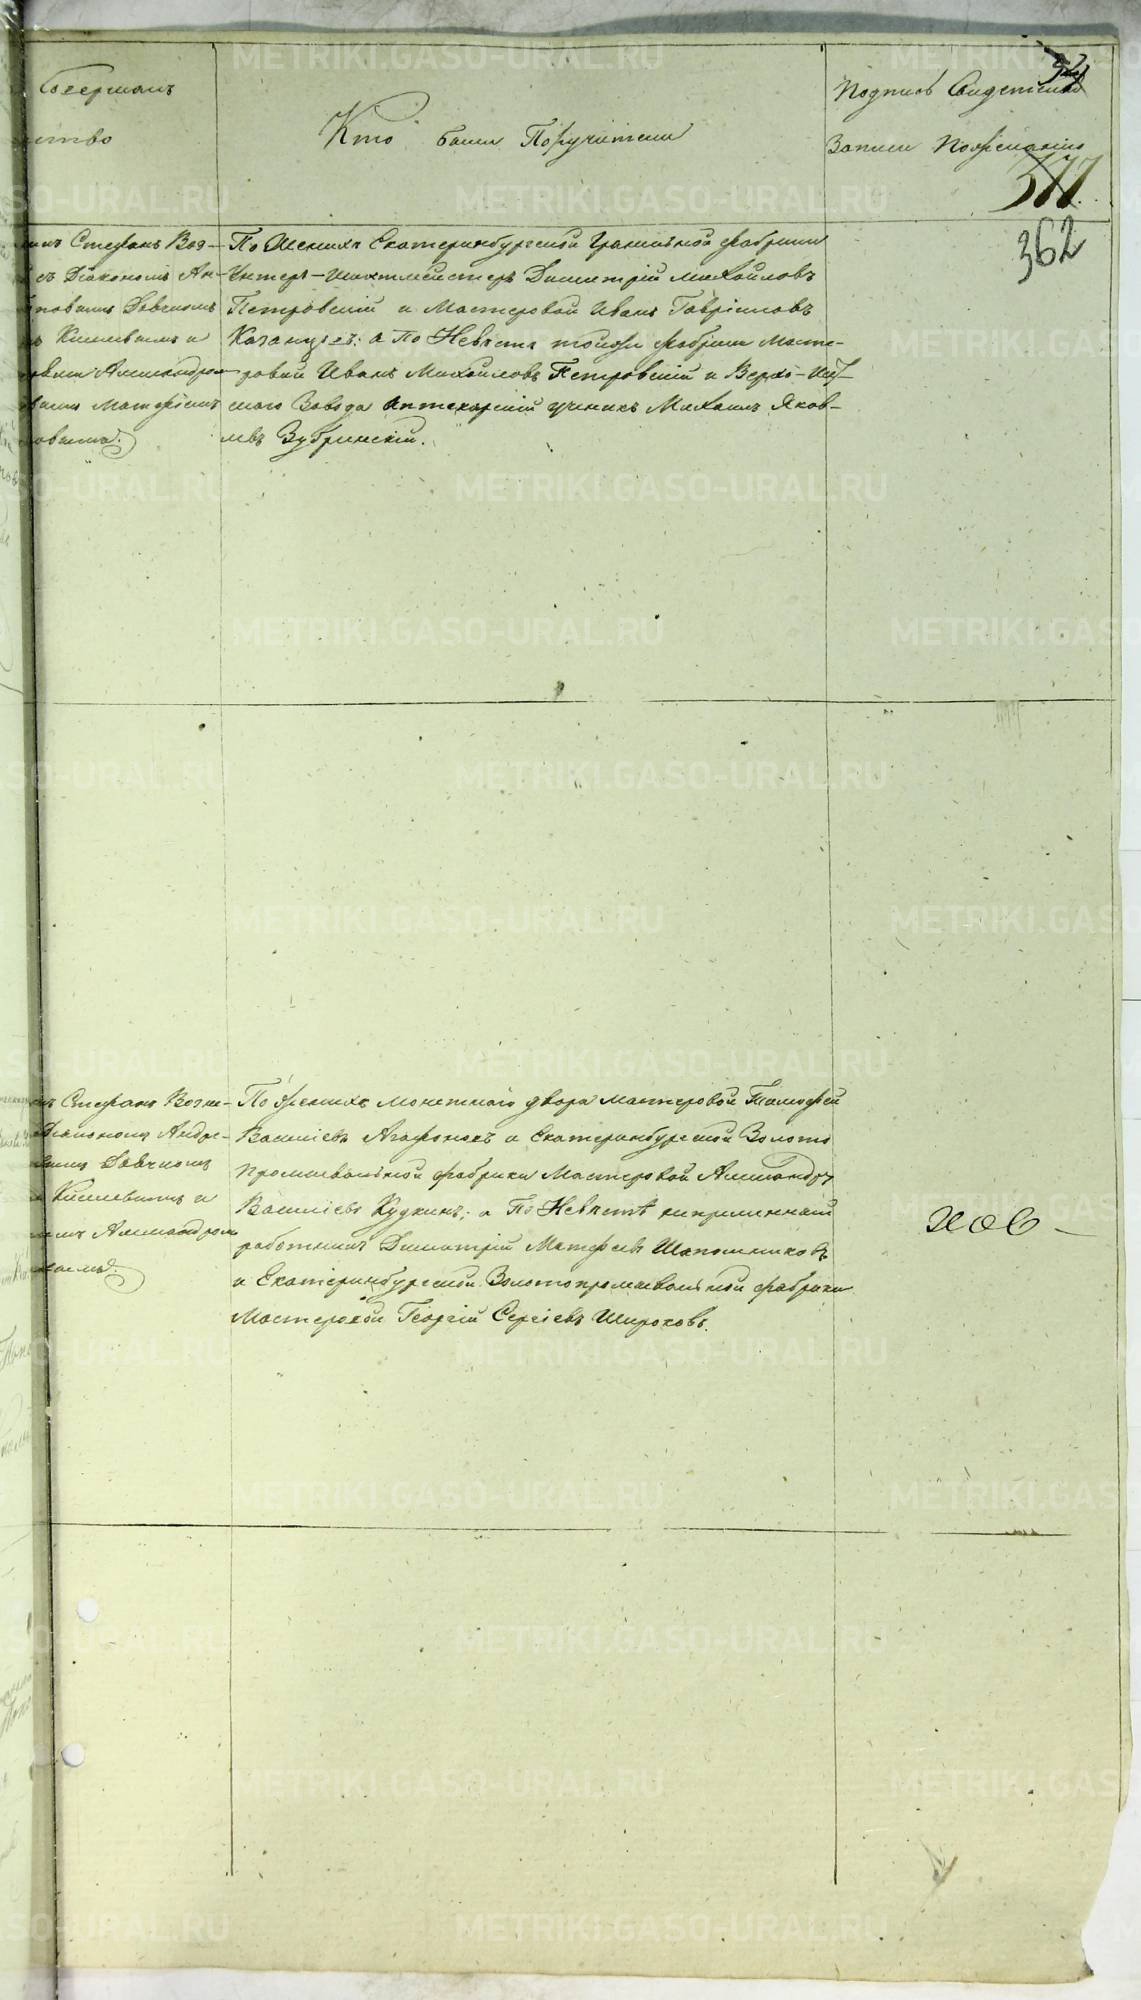 Совершалъ
Кто были Поручители
Подпись Свидетелей
Записи Пожеланію
377.
362
Стефанъ Воз-
съ Діакономъ Ан-
и
Александром
По Женихѣ Екатеринбургской Гранильной Фабрики
Унтеръ-шихтмейстеръ Димитрій Михайловъ
Петровскій и Мастеровой Иванъ Гаврииловъ
Казанцевъ; а по Невѣстѣ той же фабрики Масте-
ровой Иванъ Михайловъ Петровскій и Верхъ-Исѣт-
скаго Завода Аптекарскій ученикъ Михаилъ Яков-
левъ Зубринскій.
Стефанъ Возне-
Діакономъ Андре-
и
Александром
По Женихѣ Монетнаго двора мастеровой Тимофей
Василіевъ Агафоновъ и Екатеринбургской Золото
промывальной фабрики Мастеровой Александръ
Василіевъ Кудкинъ; а По Невѣстѣ непременный
работникъ Димитрій Матфеевъ Шапошниковъ
и Екатеринбургской Золотопромывальной фабрики
Мастеровой Георгій Сергіевъ Широковъ.
ков-
METRIKI.GASO-URAL.RU